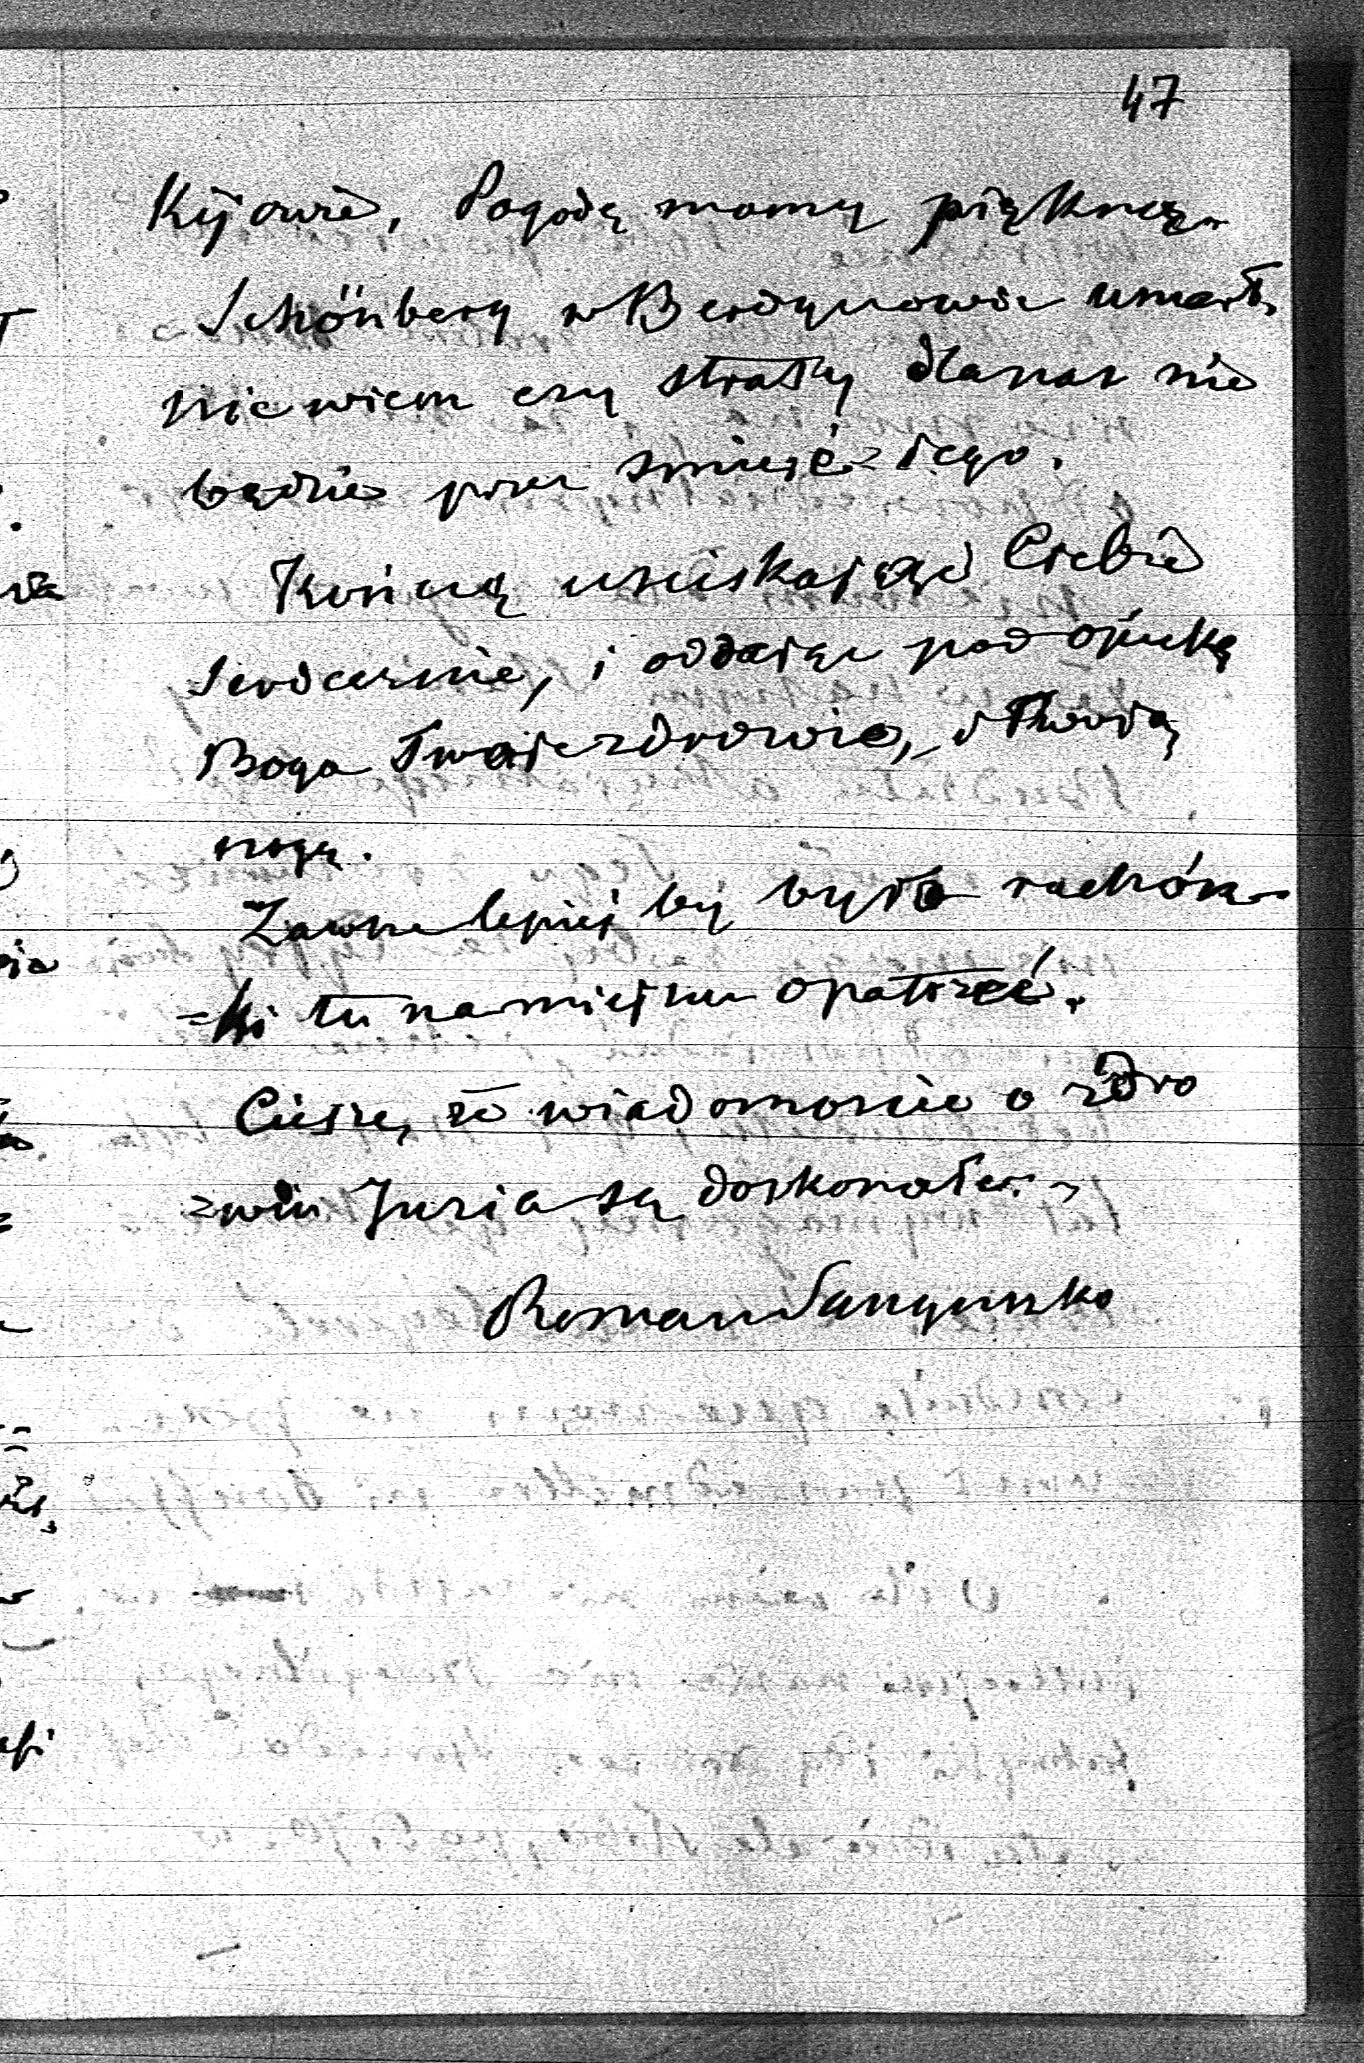 47
Kijowie, Pogodę mamy piękną.
Schönberg w Berdyczowie umarł,
nie wiem czy straty dla nas nie
będzie przez śmierć Jego.
Kończę uściskając Ciebie
serdecznie, i oddając pod opiekę
Boga Twoje zdrowie, i Twoją
nogę.
Zawsze lepiej by było rachón-
=ki tu na miejscu opatrzeć.
Cieszę, że wiadomoście o zdro
=wiu Juzia są doskonałe. -
Roman Sanguszko